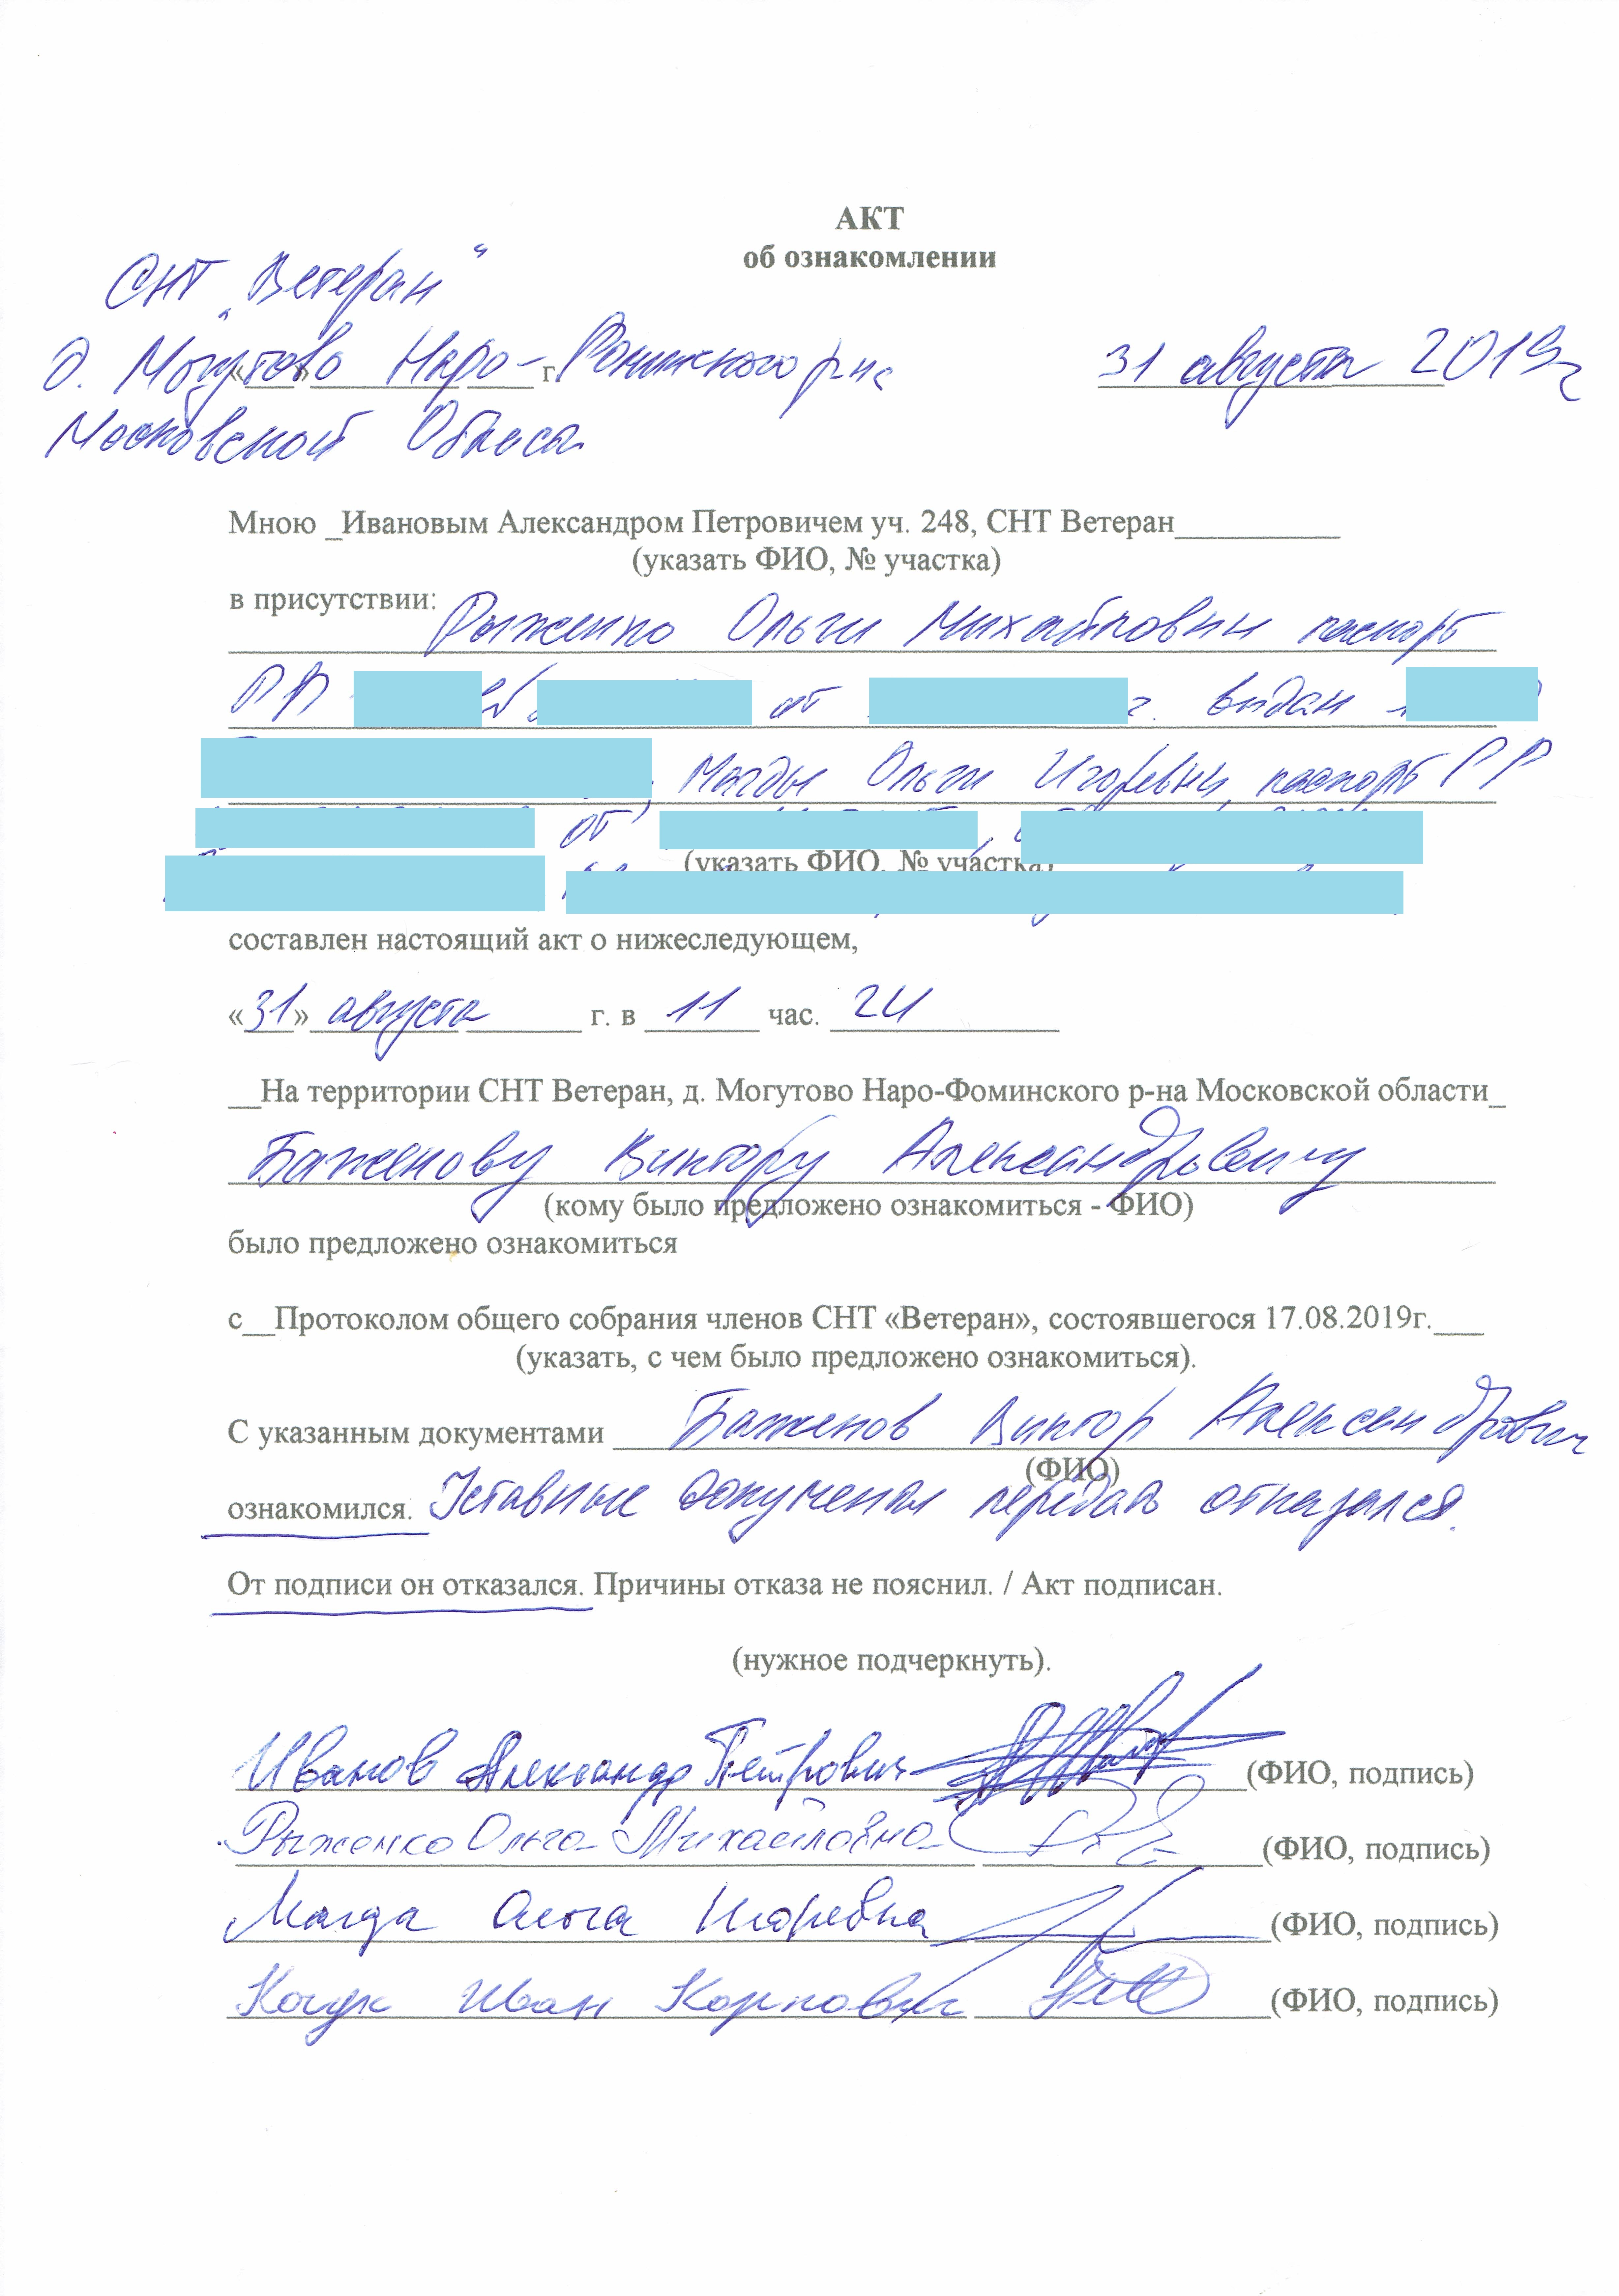 АКТ
об ознакомлении
СНТ „Ветеран"
д. Могутово Наро-Фоминского р-на
« » г.
31 августа 2019г
Московской Области
Мною _Ивановым Александром Петровичем уч. 248, СНТ Ветеран__________
(указать ФИО, № участка)
в присутствии:
Рыженко Ольги Михайловны паспорт
РФ от г. выдан
Магды Ольги Игоревны, паспорт РФ
от
(указать ФИО, № участка)
составлен настоящий акт о нижеследующем,
«31» августа г. в 11 час. 24
__На территории СНТ Ветеран, д. Могутово Наро-Фоминского р-на Московской области_
Баженову Виктору Александровичу
(кому было предложено ознакомиться - ФИО)
было предложено ознакомиться
с__Протоколом общего собрания членов СНТ «Ветеран», состоявшегося 17.08.2019г.___
(указать, с чем было предложено ознакомиться).
С указанным документами Баженов Виктор Александрович
(ФИО)
ознакомился. Уставные документы передать отказался.
От подписи он отказался. Причины отказа не пояснил. / Акт подписан.
(нужное подчеркнуть).
Иванов Александр Петрович (ФИО, подпись)
Рыженко Ольга Михайловна (ФИО, подпись)
Магда Ольга Игоревна (ФИО, подпись)
Иван Карпович (ФИО, подпись)